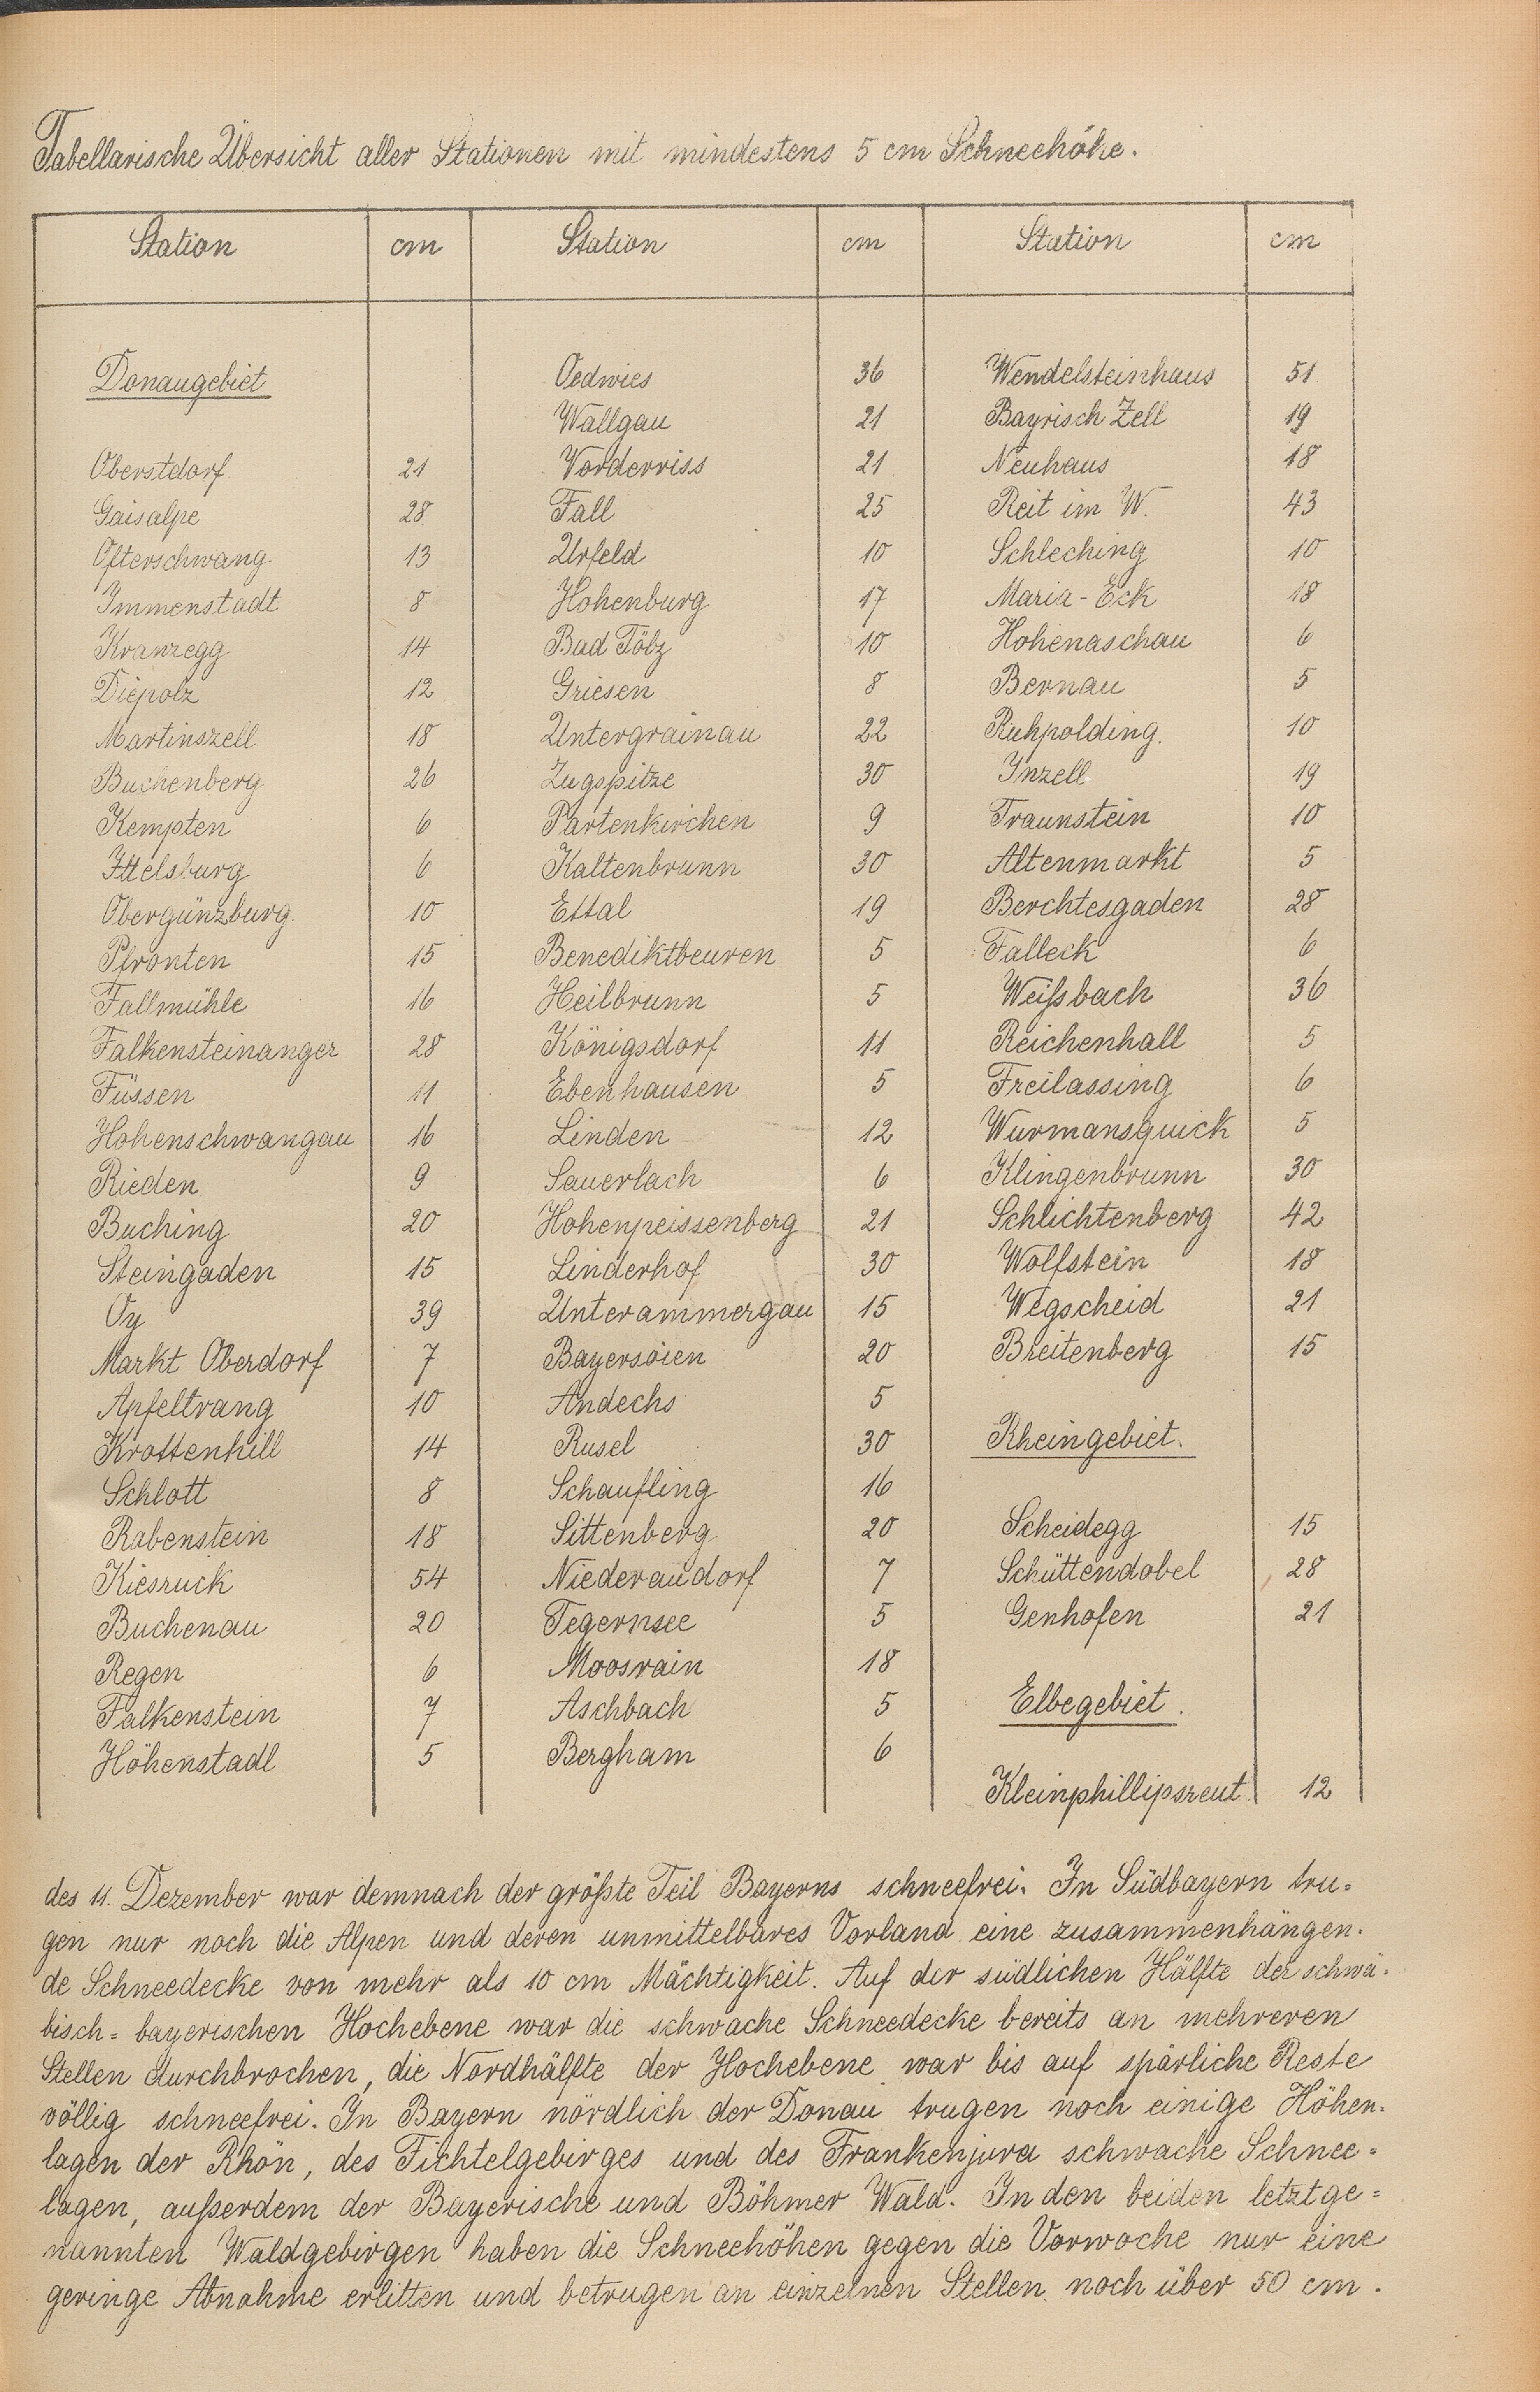 Tabellarische Übersicht aller Stationen mit mindestens 5 cm Schneehöhe.
Station cm Station cm Station cm
Donaugebiet Oedwies 36 Wendelsteinhaus 51
Wallgau 21 Bayrisch Zell 19
Oberstdorf 21 Vorderriss 21 Neuhaus 18
Gaisalpe 28 Fall 25 Reit im W. 43
Ofterschwang 13 Urfeld 10 Schleching 10
Immenstadt 8 Hohenburg 17 Maria-Eck 18
Kranzegg 14 Bad Tölz 10 Hohenaschau 6
Diepolz 12 Griesen 8 Bernau 5
Martinszell 18 Untergrainau 22 Ruhpolding. 10
Buchenberg 26 Zugspitze 30 Inzell 19
Kempten 6 Partenkirchen 9 Traunstein 10
Ittelsburg 6 Kaltenbrunn 30 Altenmarkt 5
Obergünzburg 10 Ettal 19 Berchtesgaden 28
Pfronten 15 Benediktbeuren 5 Falleck 6
Fallmühle 16 Heilbrunn 5 Weißbach 36
Falkensteinanger 28 Königsdorf 11 Reichenhall 5
Füssen 11 Ebenhausen 5 Freilassing 6
Hohenschwangau 16 Linden 12 Wurmansquick 5
Rieden 9 Sauerlach 6 Klingenbrunn 30
Buching 20 Hohenpeissenberg 21 Schlichtenberg 42
Steingaden 15 Linderhof 30 Wolfstein 18
Oy 39 Unterammergau 15 Wegscheid 21
Markt Oberdorf 7 Bayersoien 20 Breitenberg 15
Apfeltrang 10 Andechs 5
Krottenhill 14 Rusel 30 Rheingebiet.
Schlott 8 Schaufling 16
Rabenstein 18 Sittenberg 20 Scheidegg 15
Kiesruck 54 Niederaudorf 7 Schüttendobel 28
Buchenau 20 Tegernsee 5 Genhofen 21
Regen 6 Moosrain 18
Falkenstein 7 Aschbach 5 Elbegebiet.
Höhenstadl 5 Bergham 6
Kleinphillipsreut 12
des 11. Dezember war demnach der größte Teil Bayerns schneefrei. In Südbayern tru-
gen nur noch die Alpen und deren unmittelbares Vorland eine zusammenhängen-
de Schneedecke von mehr als 10 cm Mächtigkeit. Auf der südlichen Hälfte der schwä-
bisch=bayerischen Hochebene war die schwache Schneedecke bereits an mehreren
Stellen durchbrochen, die Nordhälfte der Hochebene war bis auf spärliche Reste
völlig schneefrei. In Bayern nördlich der Donau trugen noch einige Höhen-
lagen der Rhön, des Fichtelgebirges und des Frankenjura schwache Schnee=
lagen, außerdem der Bayerische und Böhmer Wald. In den beiden letztge=
nannten Waldgebirgen haben die Schneehöhen gegen die Vorwoche nur eine
geringe Abnahme erlitten und betrugen an einzelnen Stellen noch über 50 cm.